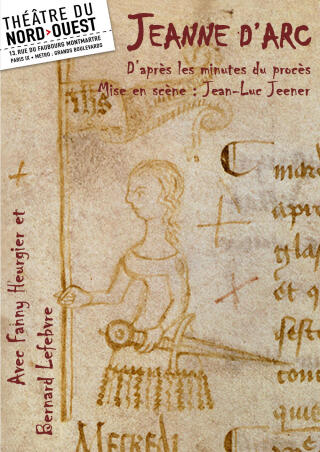 THÉÂTRE DU
NORD>OUEST
13, RUE DU FAUBOURG MONTMARTRE
PARIS IX • METRO : GRANDS BOULEVARDS
JEANNE D'ARC
D'après les minutes du procès
Mise en scène : Jean-Luc Jeener
Avec Fanny Heurgier et
Bernard Lefebvre